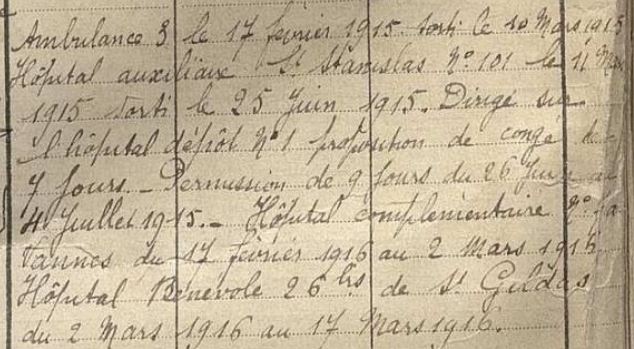 Ambulance 3 le 17 février 1915. Sorti le 10 Mars 1915
Hôpital auxiliaire St Stanislas N° 101 le 11 Mars
1915 Sorti le 25 Juin 1915. Dirigé sur
l'hôpital dépôt N° 1 proposition de congé de
7 Jours. - Permission de 9 Jours du 26 Juin au
4 Juillet 1915. - Hôpital complémentaire N°
Vannes du 17 février 1916 au 2 Mars 1916
Hôpital Bénévole 26 bis de St Gildas
du 2 Mars 1916 au 17 Mars 1916.